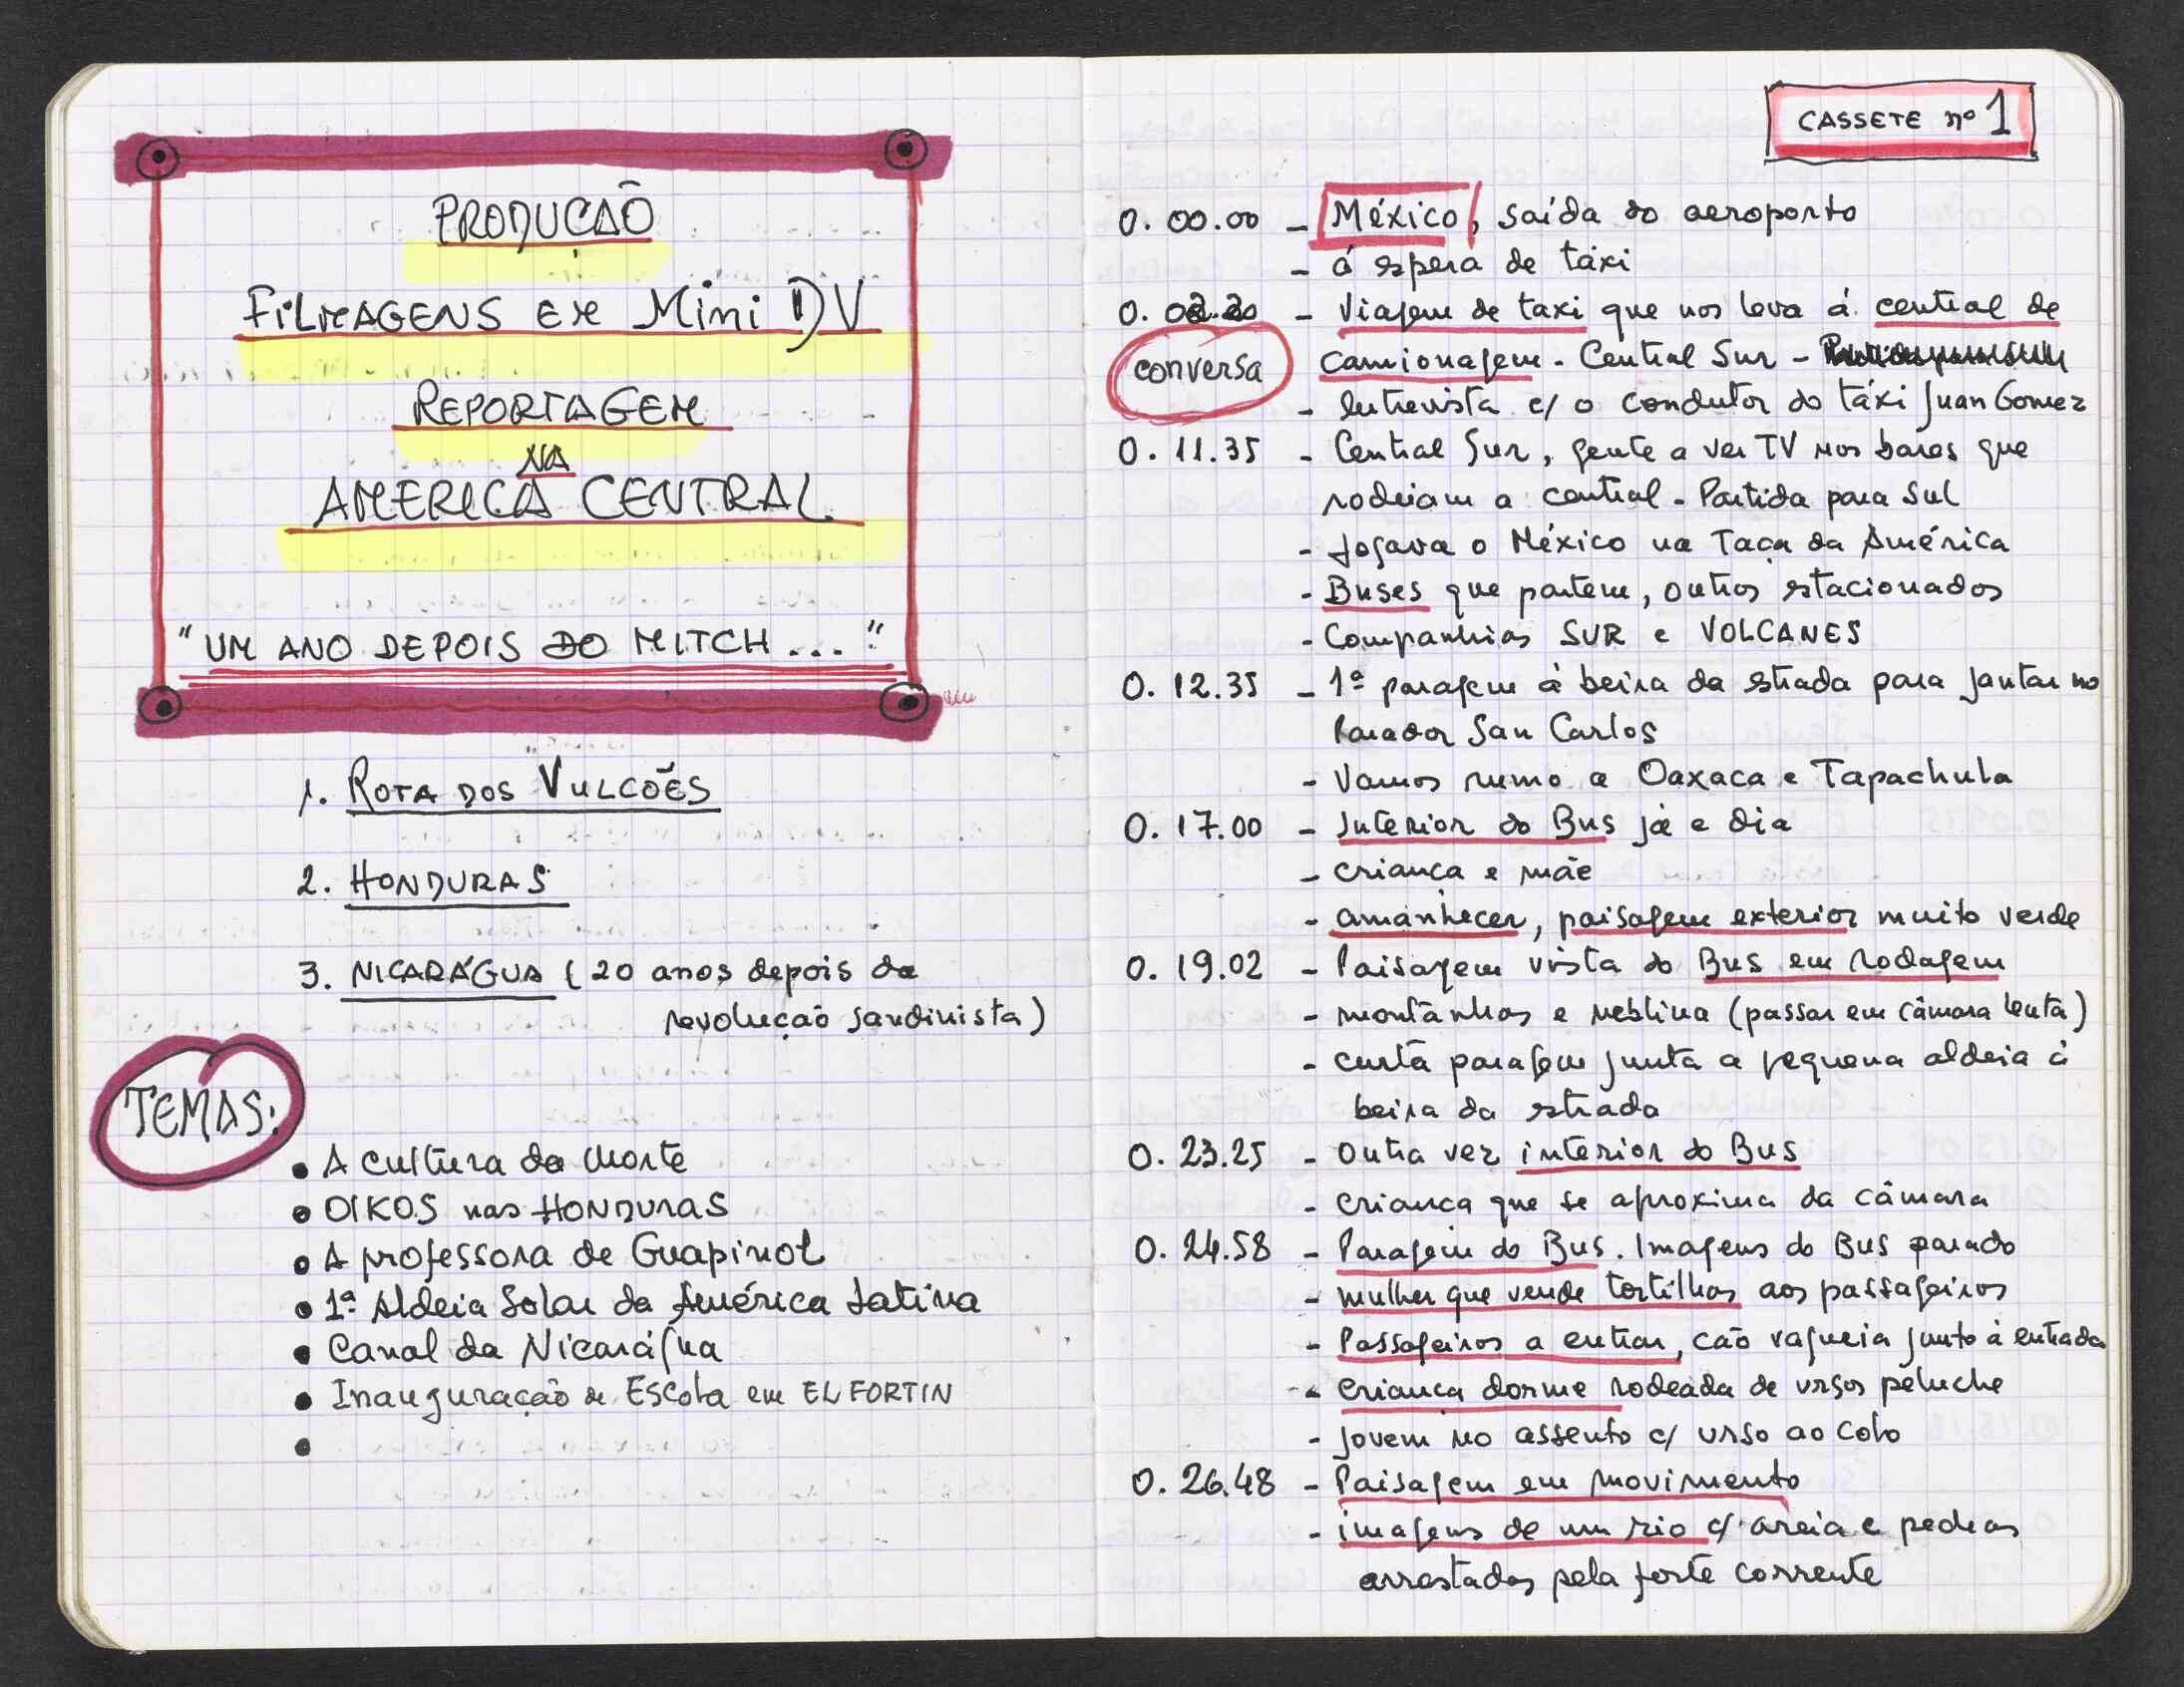 PRODUÇÃO
FILMAGENS EM Mini DV
REPORTAGEM
NA
AMERICA CENTRAL
"UM ANO DEPOIS DO MITCH..."
1. ROTA DOS VULCÕES
2. HONDURAS
3. NICARÁGUA (20 anos depois da
revolução sandinista)
TEMAS:
• A cultura da Morte
• OIKOS nas HONDURAS
• A professora de Guapinol
• 1ª Aldeia Solar da América Latina
• Canal da Nicarágua
• Inauguração de Escola em EL FORTIN
•
CASSETE nº 1
0. 00.00 - México, saída do aeroporto
- á espera de táxi
0. 02.20 - Viagem de taxi que nos leva á central de
conversa camionagem - Central Sur -
- Entrevista c/ o condutor do táxi Juan Gomez
0. 11.35 - Central Sur, gente a ver TV nos bares que
rodeiam a central - Partida para Sul
- Jogava o México na Taça da América
- Buses que partem, outros estacionados
- Companhias SUR e VOLCANES
0. 12.35 - 1ª paragem à beira da estrada para jantar no
Parador San Carlos
- Vamos rumo a Oaxaca e Tapachula
0. 17.00 - Interior do Bus já e dia
- criança e mãe
- amanhecer, paisagem exterior muito verde
0. 19.02 - Paisagem vista do Bus em rodagem
- montanhas e neblina (passar em câmara lenta)
- curta paragem junta a pequena aldeia à
beira da estrada
0. 23.25 - Outra vez interior do Bus
- criança que se aproxima da câmara
0. 24.58 - Paragem do Bus. Imagens do Bus parado
- mulher que vende tortilhas aos passageiros
- Passageiros a entrar, cão vagueia junto á entrada
- criança dorme rodeada de ursos peluche
- jovem no assento c/ urso ao colo
0. 26.48 - Paisagem em movimento
- imagens de um rio c/ areia e pedras
arrastadas pela forte corrente